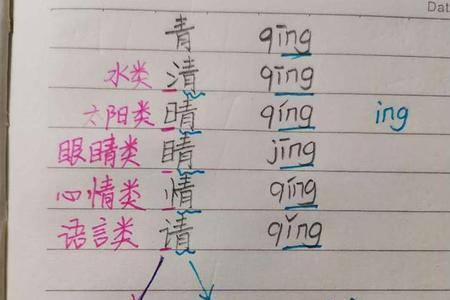 Dat
青 qīng
水类 清 qīng
太阳类 晴 qíng ing
眼睛类 睛 jīng
心情类 情 qíng
语言类 请 qǐng